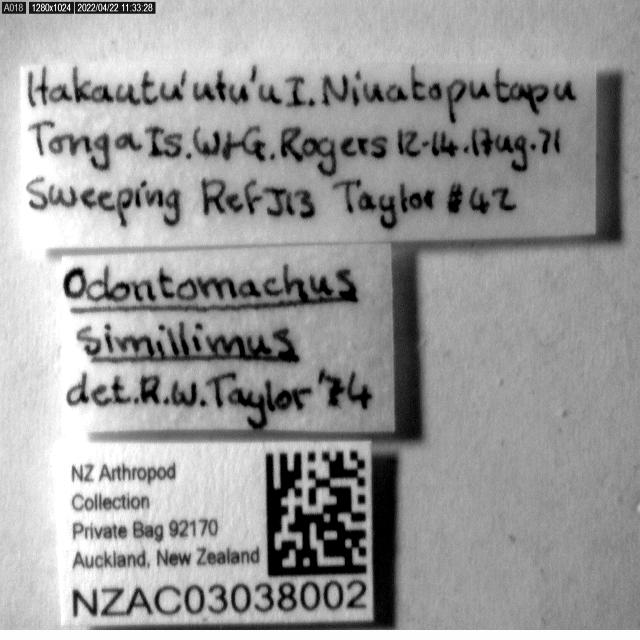 A018 1280x1024 2022/04/22 11:33:28
Hakautu'utu'u I. Niuatoputapu
Tonga Is. W+G. Rogers 12-14.Aug.71
Sweeping Ref J13 Taylor #42
Odontomachus
simillimus
det.R.W.Taylor '74
NZ Arthropod
Collection
Private Bag 92170
Auckland, New Zealand
NZAC03038002